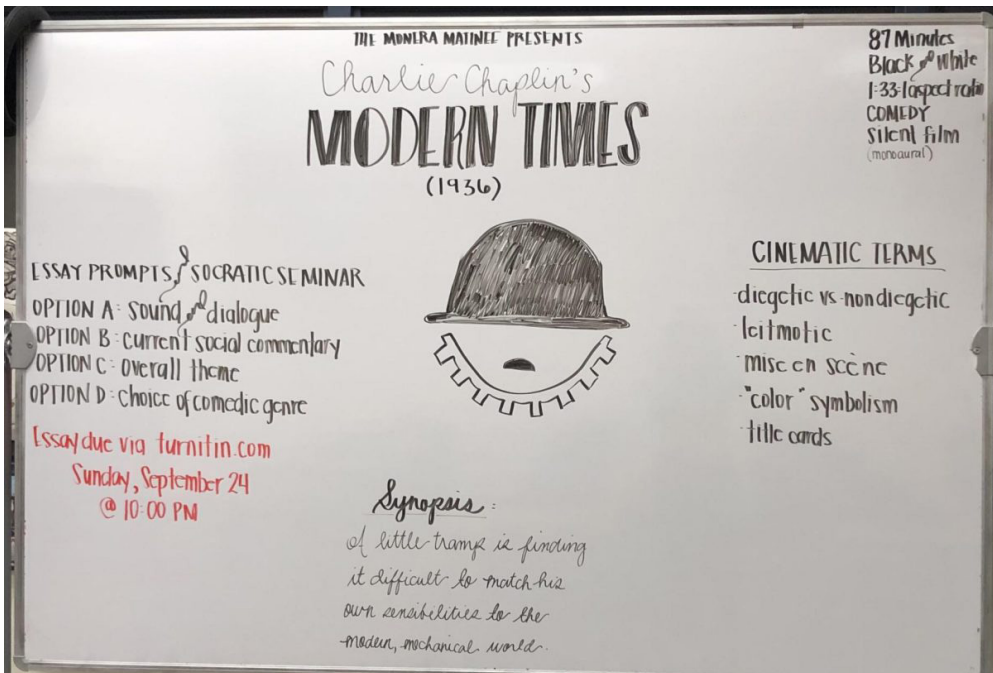 THE MONERA MATINEE PRESENTS
Charlie Chaplin's
MODERN TIMES
(1936)
87 Minutes
Black and White
1:33:1 aspect ratio
COMEDY
Silent film
(monoaural)
ESSAY PROMPTS & SOCRATIC SEMINAR
OPTION A: sound and dialogue
OPTION B: current social commentary
OPTION C: overall theme
OPTION D: choice of comedic genre
Essay due via turnitin.com
Sunday, September 24
@ 10:00 PM
CINEMATIC TERMS
·diegetic vs nondiegetic
·leitmotic
·mise en scène
·"color" symbolism
·title cards
Synopsis:
A little tramp is finding
it difficult to match his
own sensibilities to the
modern, mechanical world.